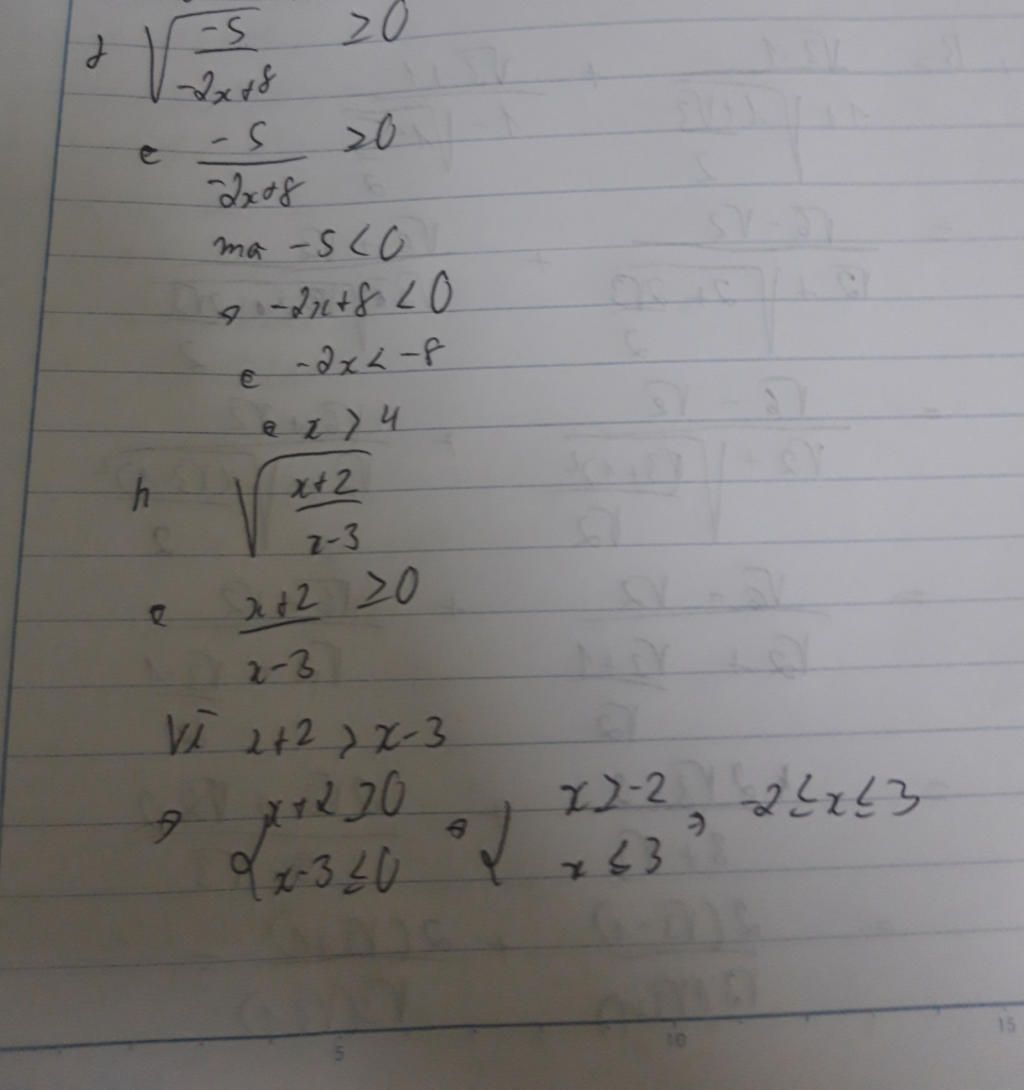 d √(-5/(-2x+8)) ≥0
⇔ -5/(-2x+8) ≥0
mà -5<0
⇒ -2x+8<0
⇔ -2x<-8
⇔ x>4
h √((x+2)/(x-3))
⇔ (x+2)/(x-3) ≥0
Vì x+2>x-3
⇒ { x+2≥0 ; x-3≤0 ⇔ { x≥-2 ; x≤3 ⇒ -2≤x≤3
5 10 15